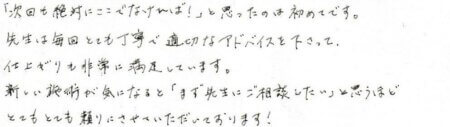 「次回も絶対にここでなければ!」と思ったのは初めてです。
先生は毎回とても丁寧で適切なアドバイスを下さって、
仕上がりも非常に満足しています。
新しい施術が気になると「まず先生にご相談したい」と思うほど
とてもとても頼りにさせていただいております!